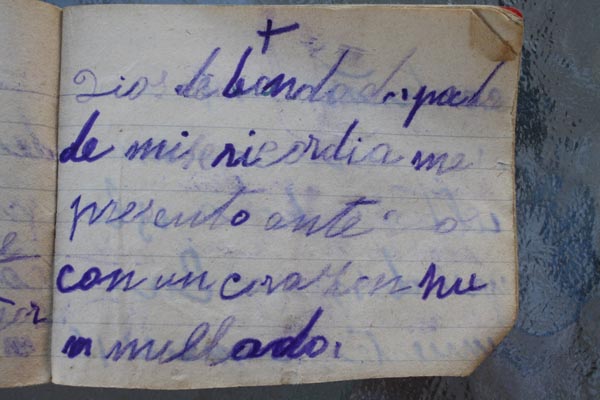 +
Dios de bondad padre
de misericordia me
presento ante
con un corazon hu
millado.